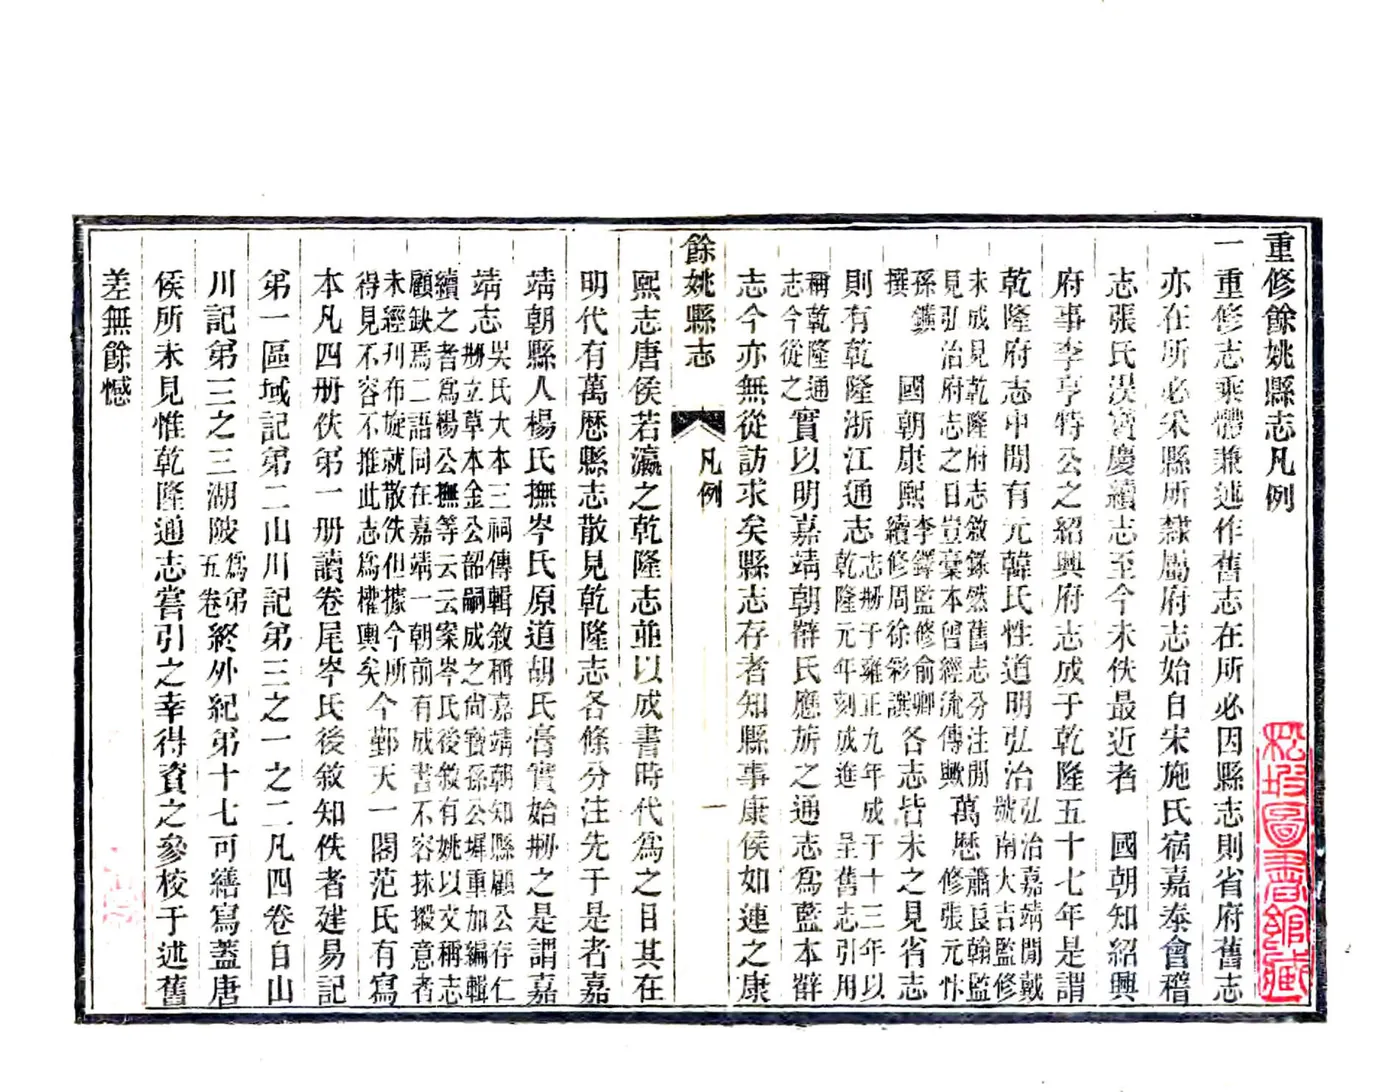 重修餘姚縣志凡例
一重修志乘體兼述作舊志在所必因縣志則省府舊志
亦在所必采縣所隸屬府志始自宋施氏宿嘉泰會稽
志張氏淏寶慶續志至今未佚最近者　國朝知紹興
府事李亨特公之紹興府志成于乾隆五十七年是謂
乾隆府志中閒有元韓氏性道明弘治弘治嘉靖閒戴號南大吉監修
未成見乾隆府志敘錄然舊志分注閒見弘治府志之目豈稾本曾經流傳歟萬歷蕭良翰監修張元忭
孫鑛撰　國朝康熙李鐸監修俞卿續修周徐彩譔各志皆未之見省志
則有乾隆浙江通志志刱于雍正九年成于十三年以乾隆元年刻成進　呈舊志引用
稱乾隆通志今從之實以明嘉靖朝薛氏應旂之通志爲藍本薛
志今亦無從訪求矣縣志存者知縣事康侯如連之康
餘姚縣志　凡例　一
熙志唐侯若瀛之乾隆志並以成書時代爲之目其在
明代有萬歷縣志散見乾隆志各條分注先于是者嘉
靖朝縣人楊氏撫岑氏原道胡氏膏實始刱之是謂嘉
靖志吳氏大本三祠傳輯敘稱嘉靖朝知縣顧公存仁刱立草本金公韶嗣成之尚寶孫公墀重加編輯
續之者爲楊公撫等云云案岑氏後敘有姚以文稱志顧缺焉二語同在嘉靖一朝前有成書不容抹摋意者
未經刊布旋就散佚但據今所得見不容不推此志爲權輿矣今鄞天一閣范氏有寫
本凡四册佚弟一册讀卷尾岑氏後敘知佚者建易記
弟一區域記弟二山川記弟三之一之二凡四卷自山
川記弟三之三湖陂爲弟五卷終外紀弟十七可繕寫蓋唐
侯所未見惟乾隆通志嘗引之幸得資之參校于述舊
差無餘憾